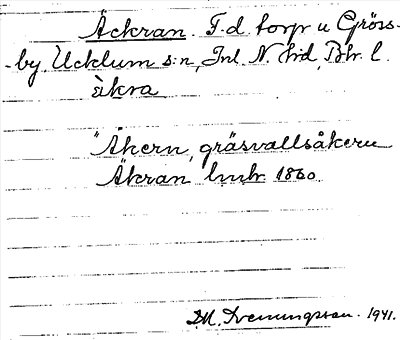 Äckran. F.d. torp u Gröss-
-by, Ucklum s:n, Inl. N. hd, Boh. l.
àkra
"Åkern, gräsvallsåkern
Äkran lmtr. 1860.
D.M. Svenningsson. 1941.